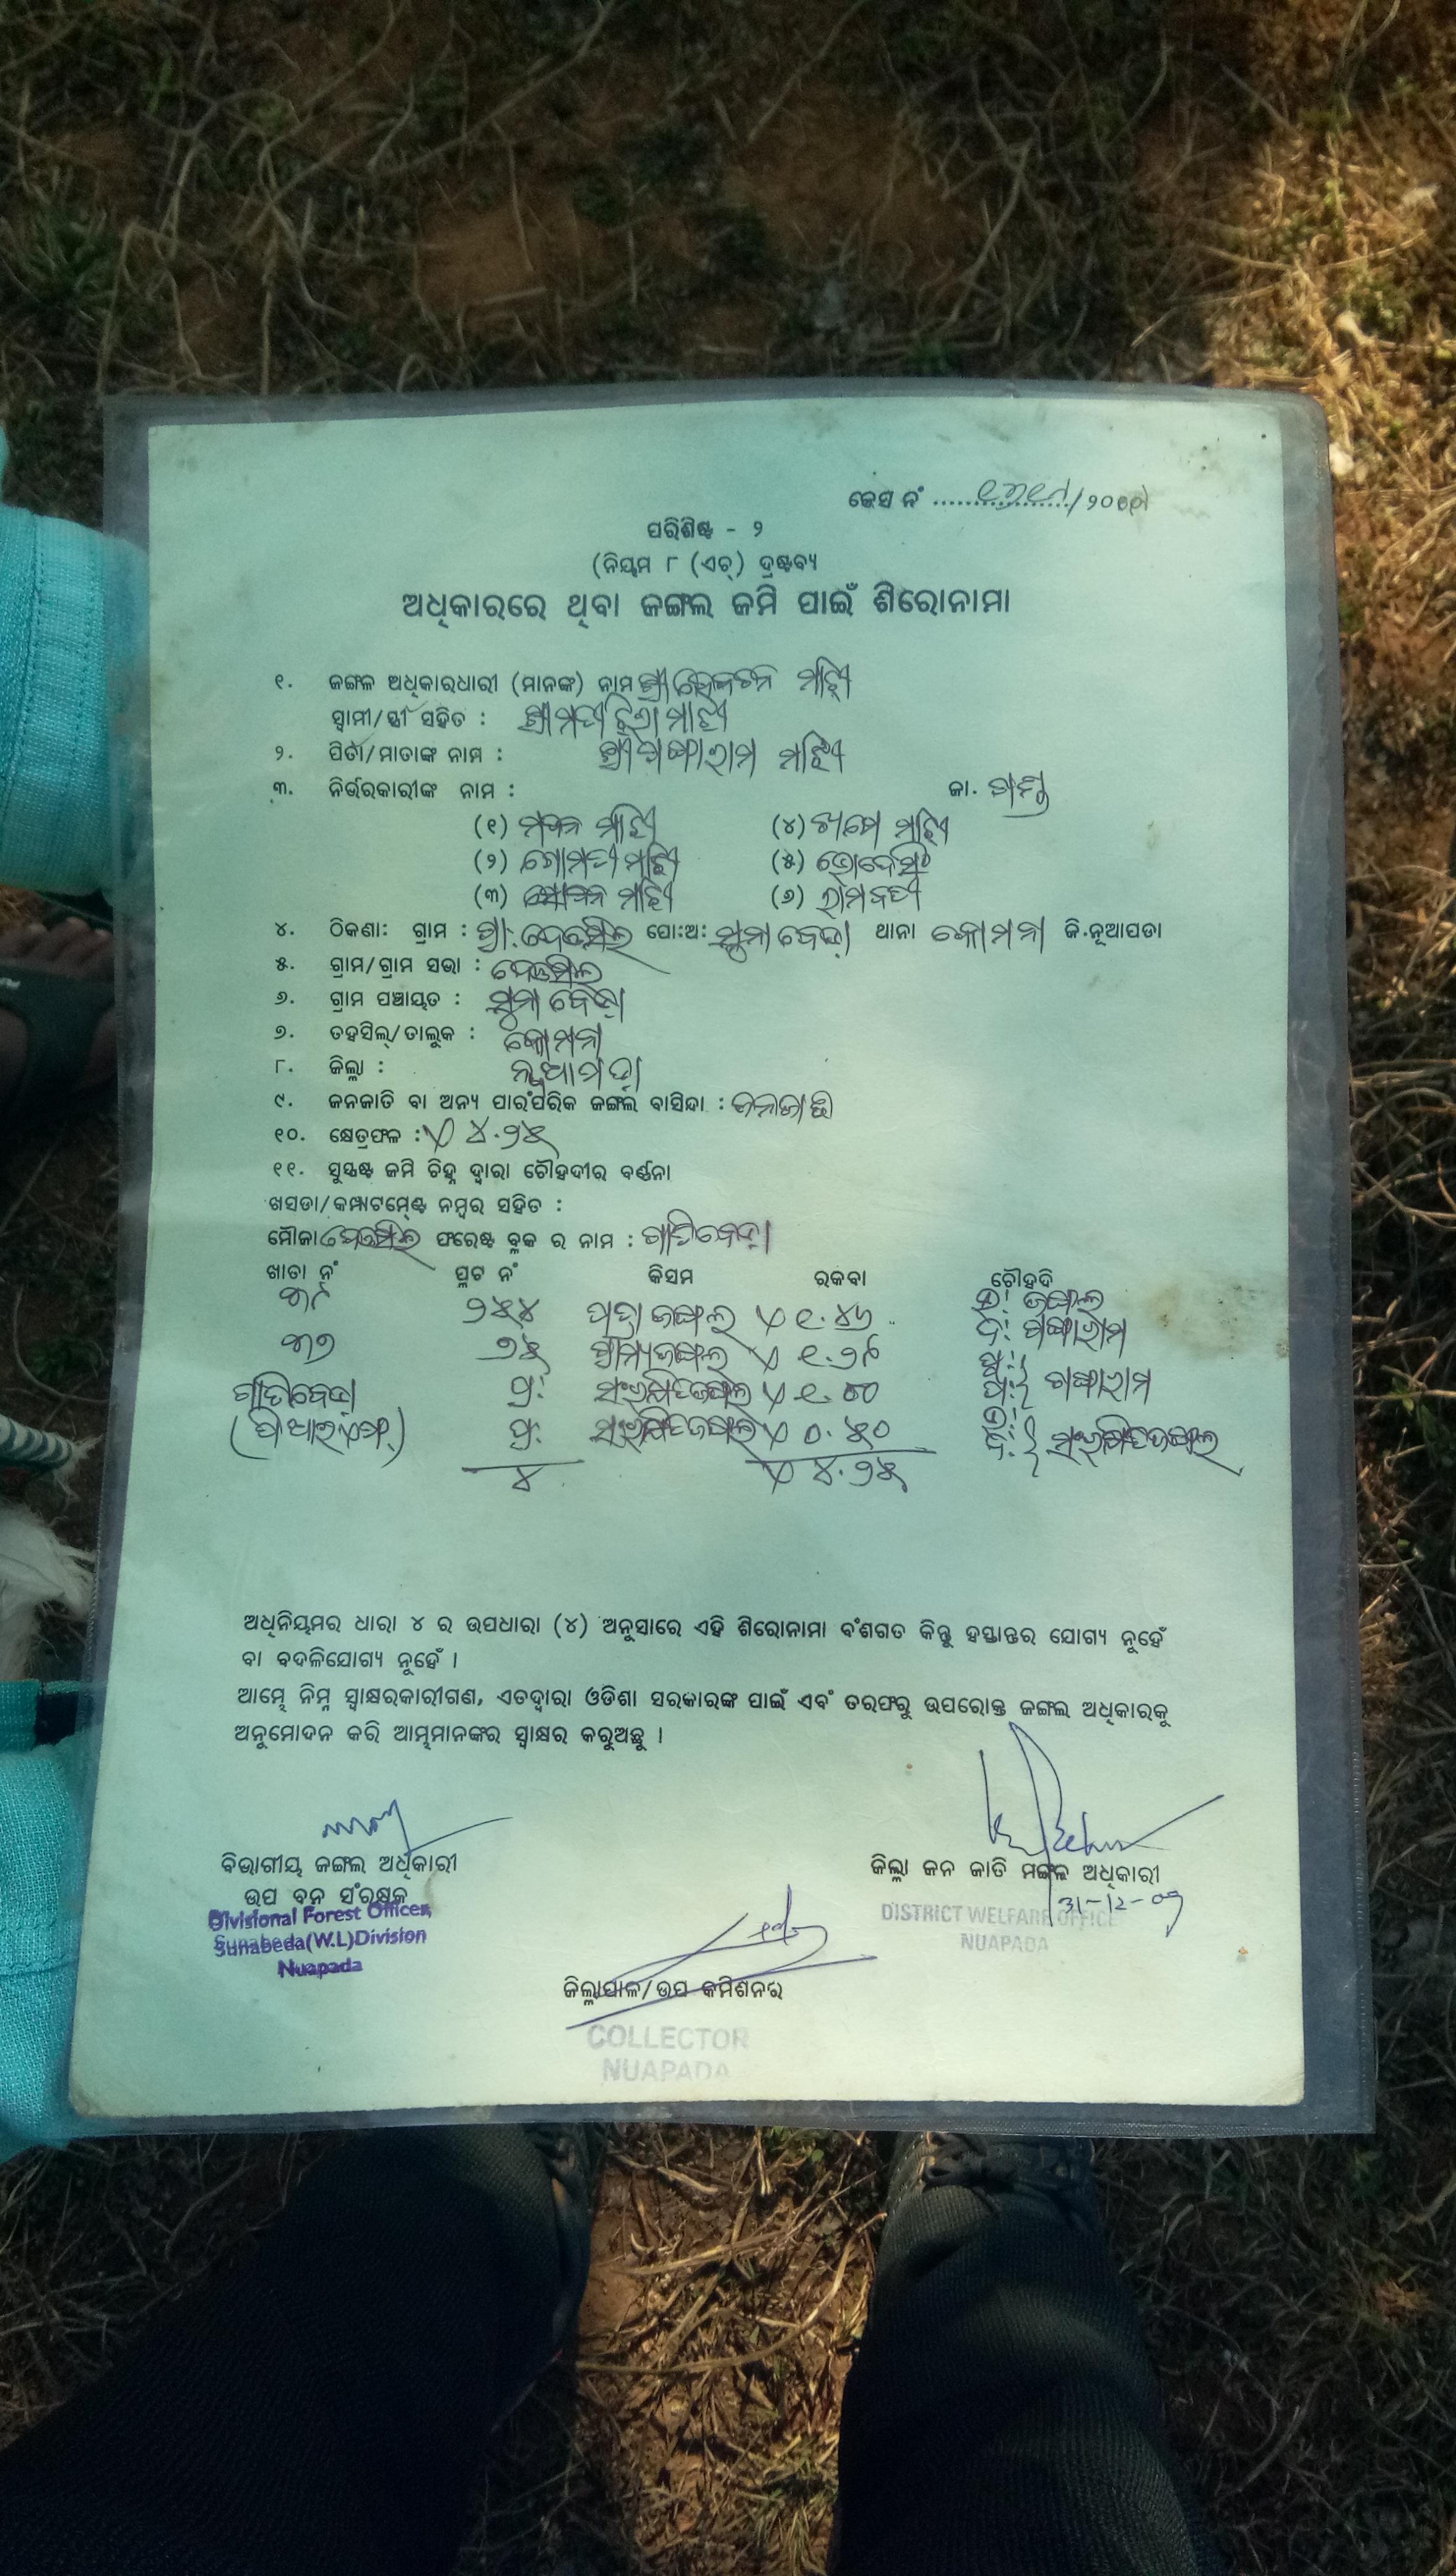 କେସ ନଂ ................../୨୦୦୯
ପରିଶିଷ୍ଟ - ୨
(ନିୟମ ୮ (ଏଚ୍) ଦ୍ରଷ୍ଟବ୍ୟ
ଅଧିକାରରେ ଥିବା ଜଙ୍ଗଲ ଜମି ପାଇଁ ଶିରୋନାମା
୧. ଜଙ୍ଗଲ ଅଧିକାରଧାରୀ (ମାନଙ୍କ) ନାମ ଶ୍ରୀ ମାଝି
ସ୍ଵାମୀ/ସ୍ତ୍ରୀ ସହିତ : ଶ୍ରୀମତୀ ମାଝୀ
୨. ପିତା/ମାତାଙ୍କ ନାମ : ଶ୍ରୀ ମାଝି
୩. ନିର୍ଭରକାରୀଙ୍କ ନାମ : ଜା. ଗଣ୍ଡ
(୧) ମଦନ ମାଝି (୪) ମାଝି
(୨) ଗୋମତୀ ମାଝି (୫)
(୩) ମାଝି (୬) ରାମବତୀ
୪. ଠିକଣା: ଗ୍ରାମ : ଗ୍ରା: ପୋ:ଅ: ସୁନାବେଡ଼ା ଥାନା କୋମନା ଜି.ନୂଆପଡା
୫. ଗ୍ରାମ/ଗ୍ରାମ ସଭା :
୬. ଗ୍ରାମ ପଞ୍ଚାୟତ : ସୁନାବେଡ଼ା
୭. ତହସିଲ୍/ତାଲୁକ : କୋମନା
୮. ଜିଲ୍ଲା : ନୂଆପଡ଼ା
୯. ଜନଜାତି ବା ଅନ୍ୟ ପାରଂପରିକ ଜଙ୍ଗଲ ବାସିନ୍ଦା : ଜନଜାତି
୧୦. କ୍ଷେତ୍ରଫଳ : ୪.୨୫
୧୧. ସୁସ୍ପଷ୍ଟ ଜମି ଚିହ୍ନ ଦ୍ଵାରା ଚୌହଦୀର ବର୍ଣ୍ଣନା
ଖସଡା/କମ୍ପାଟମେଣ୍ଟ ନମ୍ବର ସହିତ :
ମୌଜା ଫରେଷ୍ଟ ବ୍ଲକ ର ନାମ : ଗାତିବେଡ଼ା
ଖାତା ନଂ ପ୍ଲଟ ନଂ କିସମ ରକବା ଚୌହଦି
୨୫୪ ପତ୍ରା ଜଙ୍ଗଲ ୧.୪୬ ଉ: ଜଙ୍ଗଲ
ଦ: ଗଙ୍ଗାରାମ
୭୫ ଗ୍ରାମ୍ୟଜଙ୍ଗଲ ୧.୨୯ ପୂ:
ଗାତିବେଡ଼ା ପ୍ର: ସଂରକ୍ଷିତଜଙ୍ଗଲ ପ: ଗଙ୍ଗାରାମ
(ପି.ଆର୍.ଏଫ୍.) ପ୍ର: ସଂରକ୍ଷିତଜଙ୍ଗଲ ୦.୫୦ ଉ:
ଦ: ସଂରକ୍ଷିତଜଙ୍ଗଲ
୪ ୪.୨୫
ଅଧିନିୟମର ଧାରା ୪ ର ଉପଧାରା (୪) ଅନୁସାରେ ଏହି ଶିରୋନାମା ବଂଶଗତ କିନ୍ତୁ ହସ୍ତାନ୍ତର ଯୋଗ୍ୟ ନୁହେଁ
ବା ବଦଳିଯୋଗ୍ୟ ନୁହେଁ ।
ଆମ୍ଭେ ନିମ୍ନ ସ୍ଵାକ୍ଷରକାରୀଗଣ, ଏତଦ୍ଵାରା ଓଡିଶା ସରକାରଙ୍କ ପାଇଁ ଏବଂ ତରଫରୁ ଉପରୋକ୍ତ ଜଙ୍ଗଲ ଅଧିକାରକୁ
ଅନୁମୋଦନ କରି ଆମ୍ଭମାନଙ୍କର ସ୍ଵାକ୍ଷର କରୁଅଛୁ ।
ବିଭାଗୀୟ ଜଙ୍ଗଲ ଅଧିକାରୀ
ଉପ ବନ ସଂରକ୍ଷକ
Divisional Forest Officer,
Sunabeda(W.L)Division
Nuapada
ଜିଲ୍ଲା ଜନ ଜାତି ମଙ୍ଗଳ ଅଧିକାରୀ
31-12-09
DISTRICT WELFARE OFFICE
NUAPADA
ଜିଲ୍ଲାପାଳ/ଉପ କମିଶନର
COLLECTOR
NUAPADA